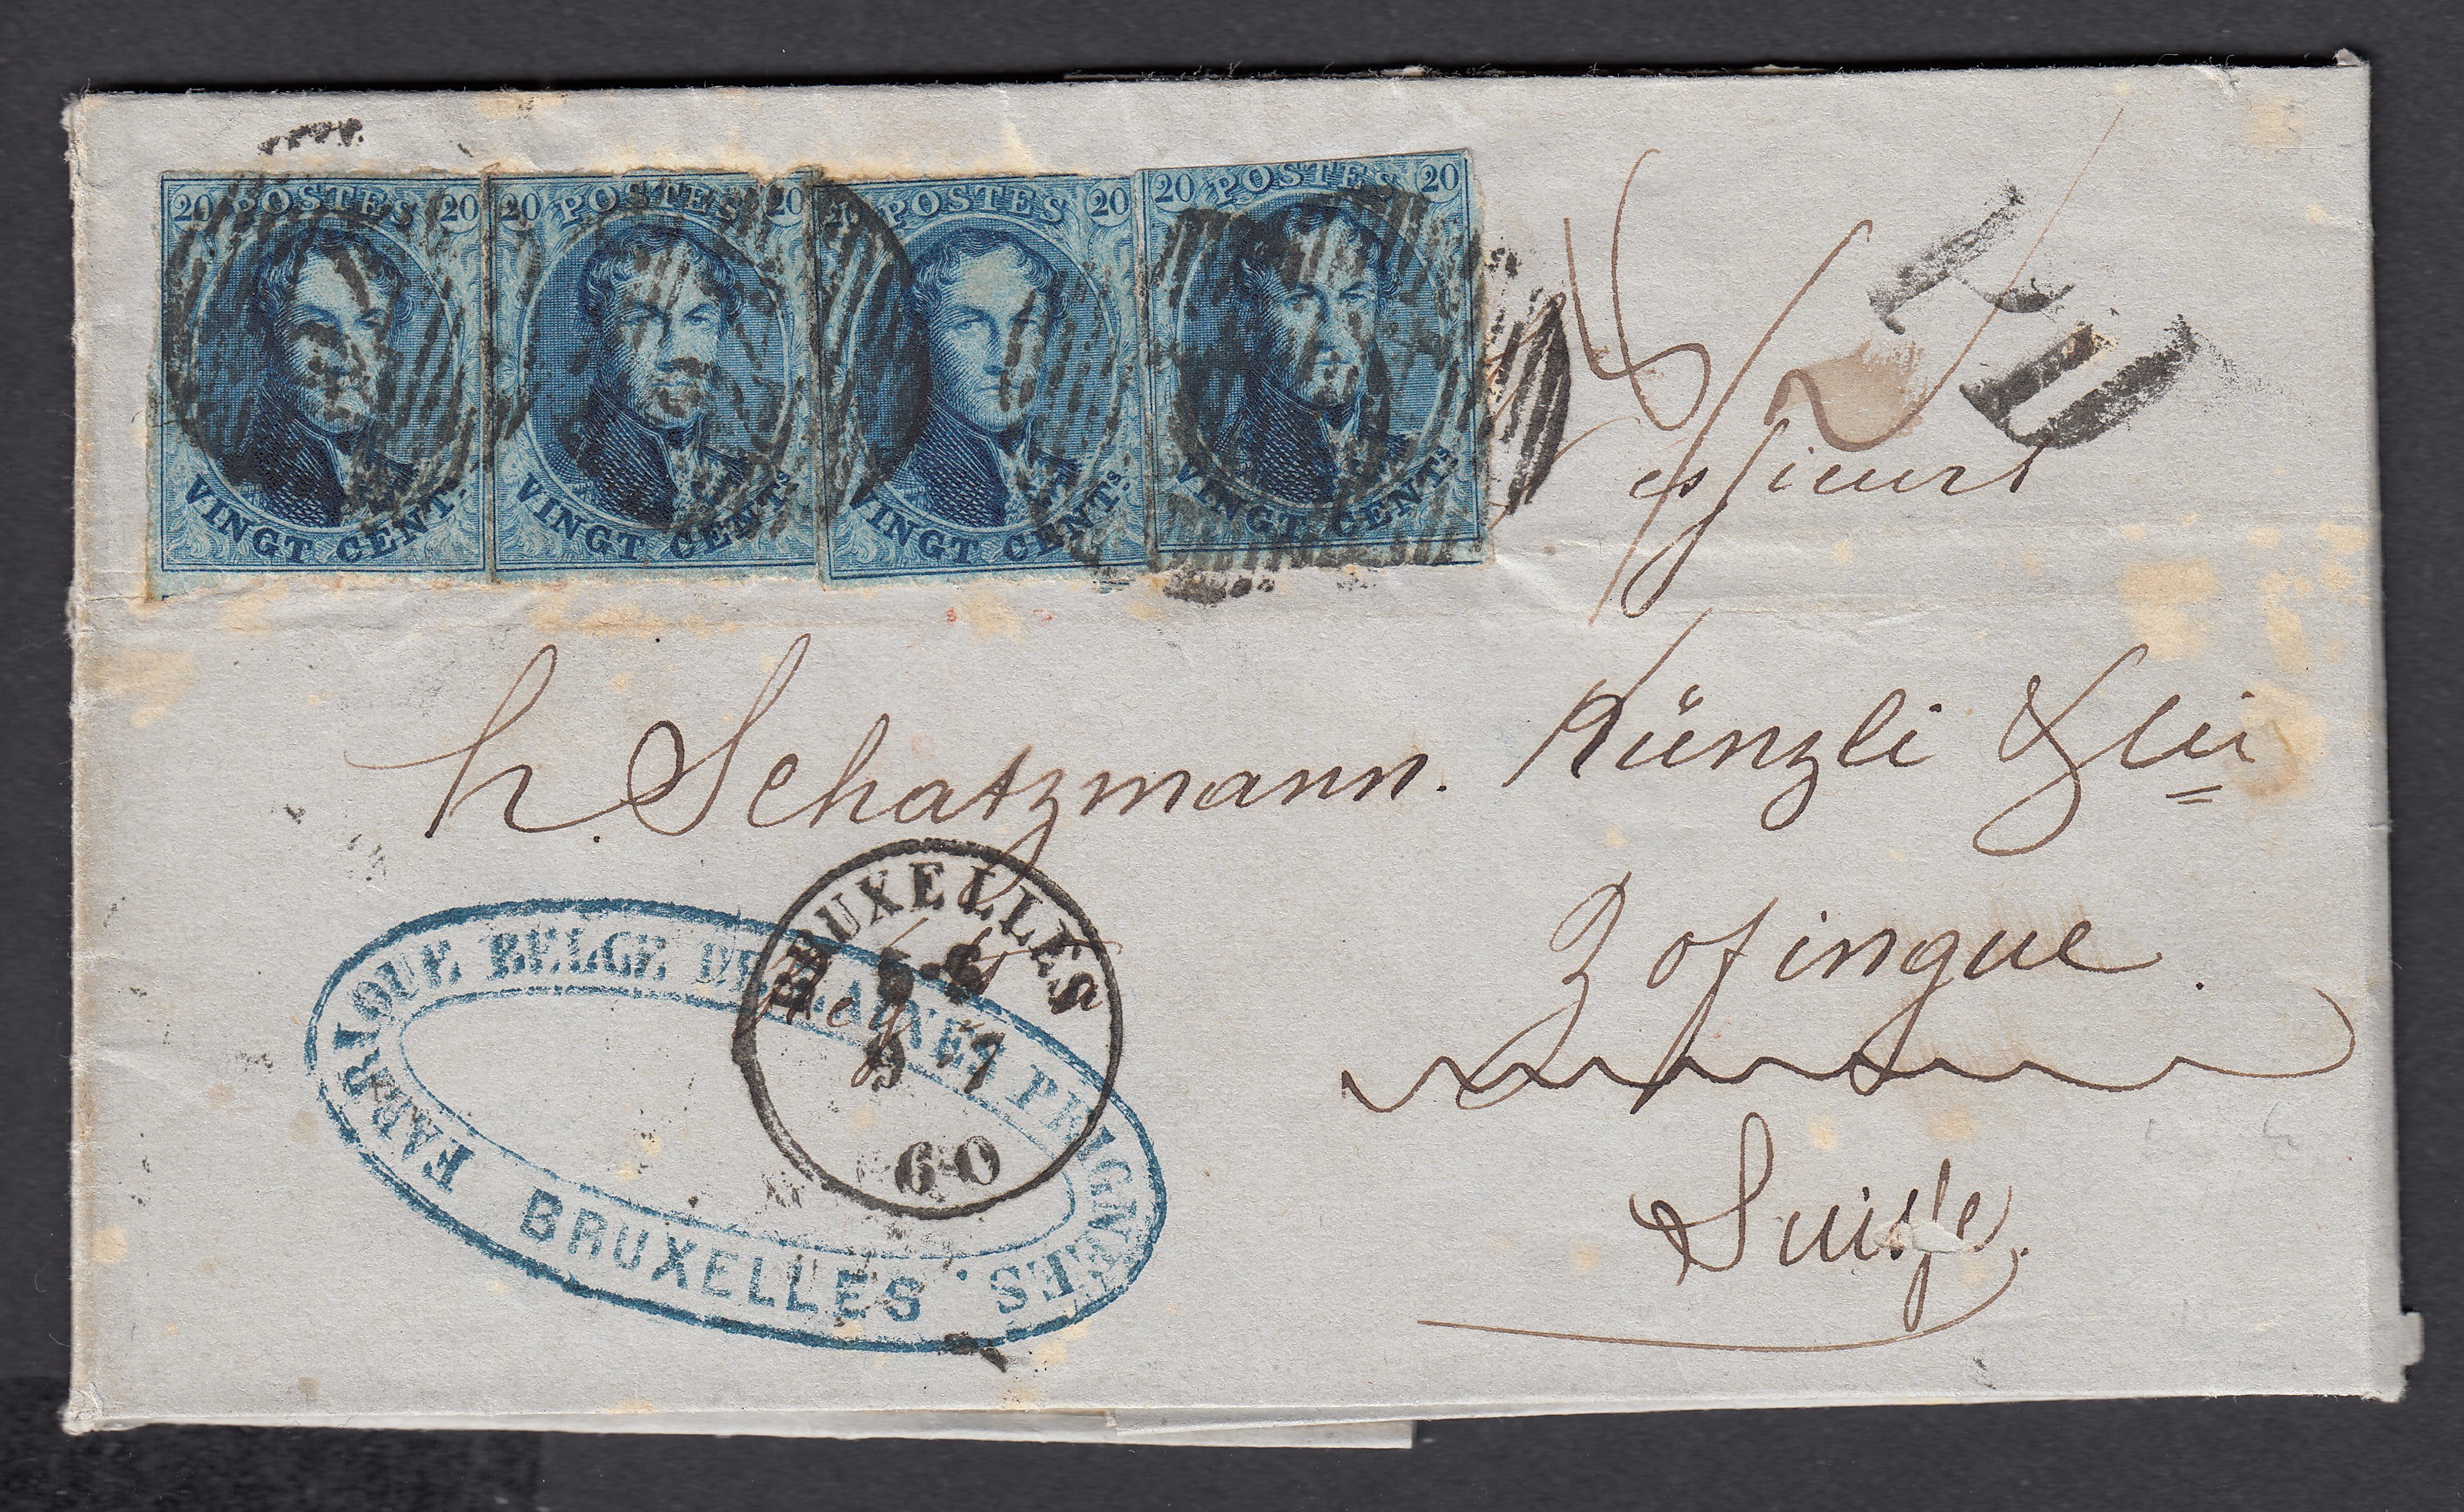 20 POSTES 20
VINGT CENTS
20 POSTES 20
VINGT CENTS
20 POSTES 20
VINGT CENTS
20 POSTES 20
VINGT CENTS
PD
Messieurs
h. Schatzmann. Künzli & Cie
Zofingue.
Suisse.
BRUXELLES
9 7
60
FABRIQUE BELGE DE LAINES PEIGNÉES.
BRUXELLES